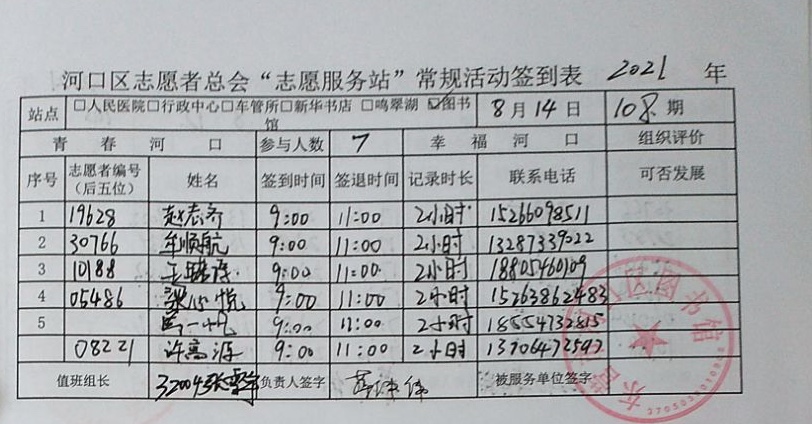 河口区志愿者总会“志愿服务站”常规活动签到表 2021 年
站点 □人民医院□行政中心□车管所□新华书店 □鸣翠湖 ☑图书馆 8月14日 108期
青春河口 参与人数 7 幸福河口 组织评价
序号 志愿者编号（后五位） 姓名 签到时间 签退时间 记录时长 联系电话 可否发展
1 19628 赵志齐 9:00 11:00 2小时 15266098511
2 30766 牟顺航 9:00 11:00 2小时 13287339022
3 10188 9:00 11:00 2小时 18805460109
4 05486 梁心悦 9:00 11:00 2小时 15263862483
5 馬一凡 9:00 11:00 2小时 18554732815
08221 许高源 9:00 11:00 2小时 13706472597
值班组长 32004 负责人签字 被服务单位签字
河口区图书馆